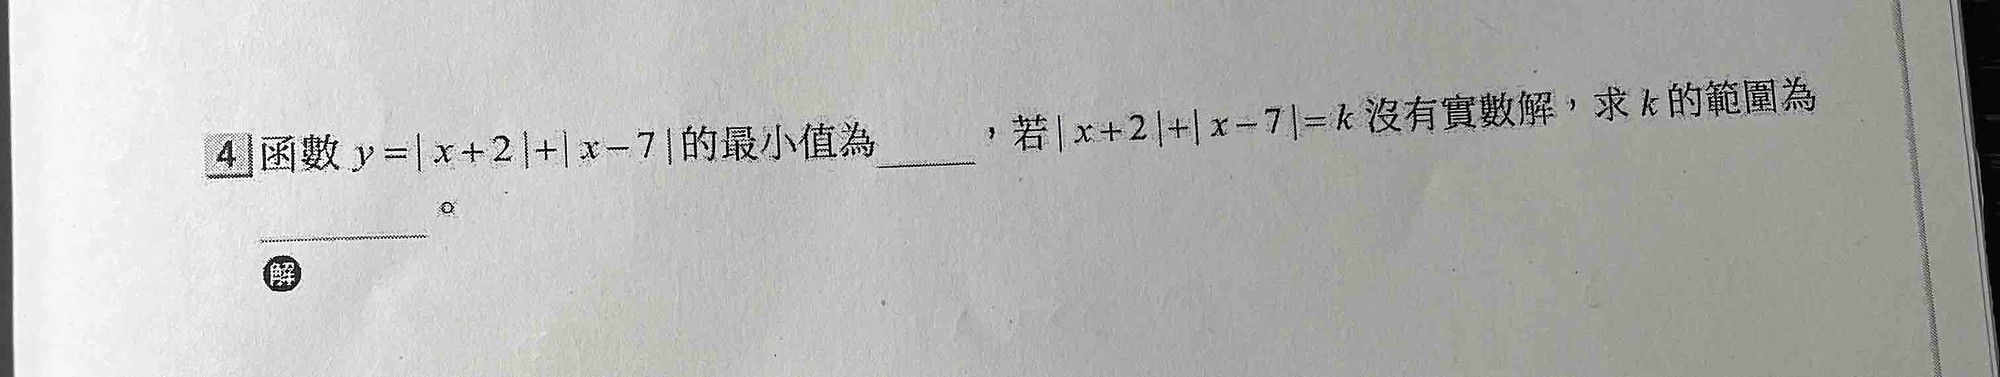 4 函數 y=|x+2|+|x-7|的最小值為____,若|x+2|+|x-7|=k 沒有實數解,求 k 的範圍為
________。
解